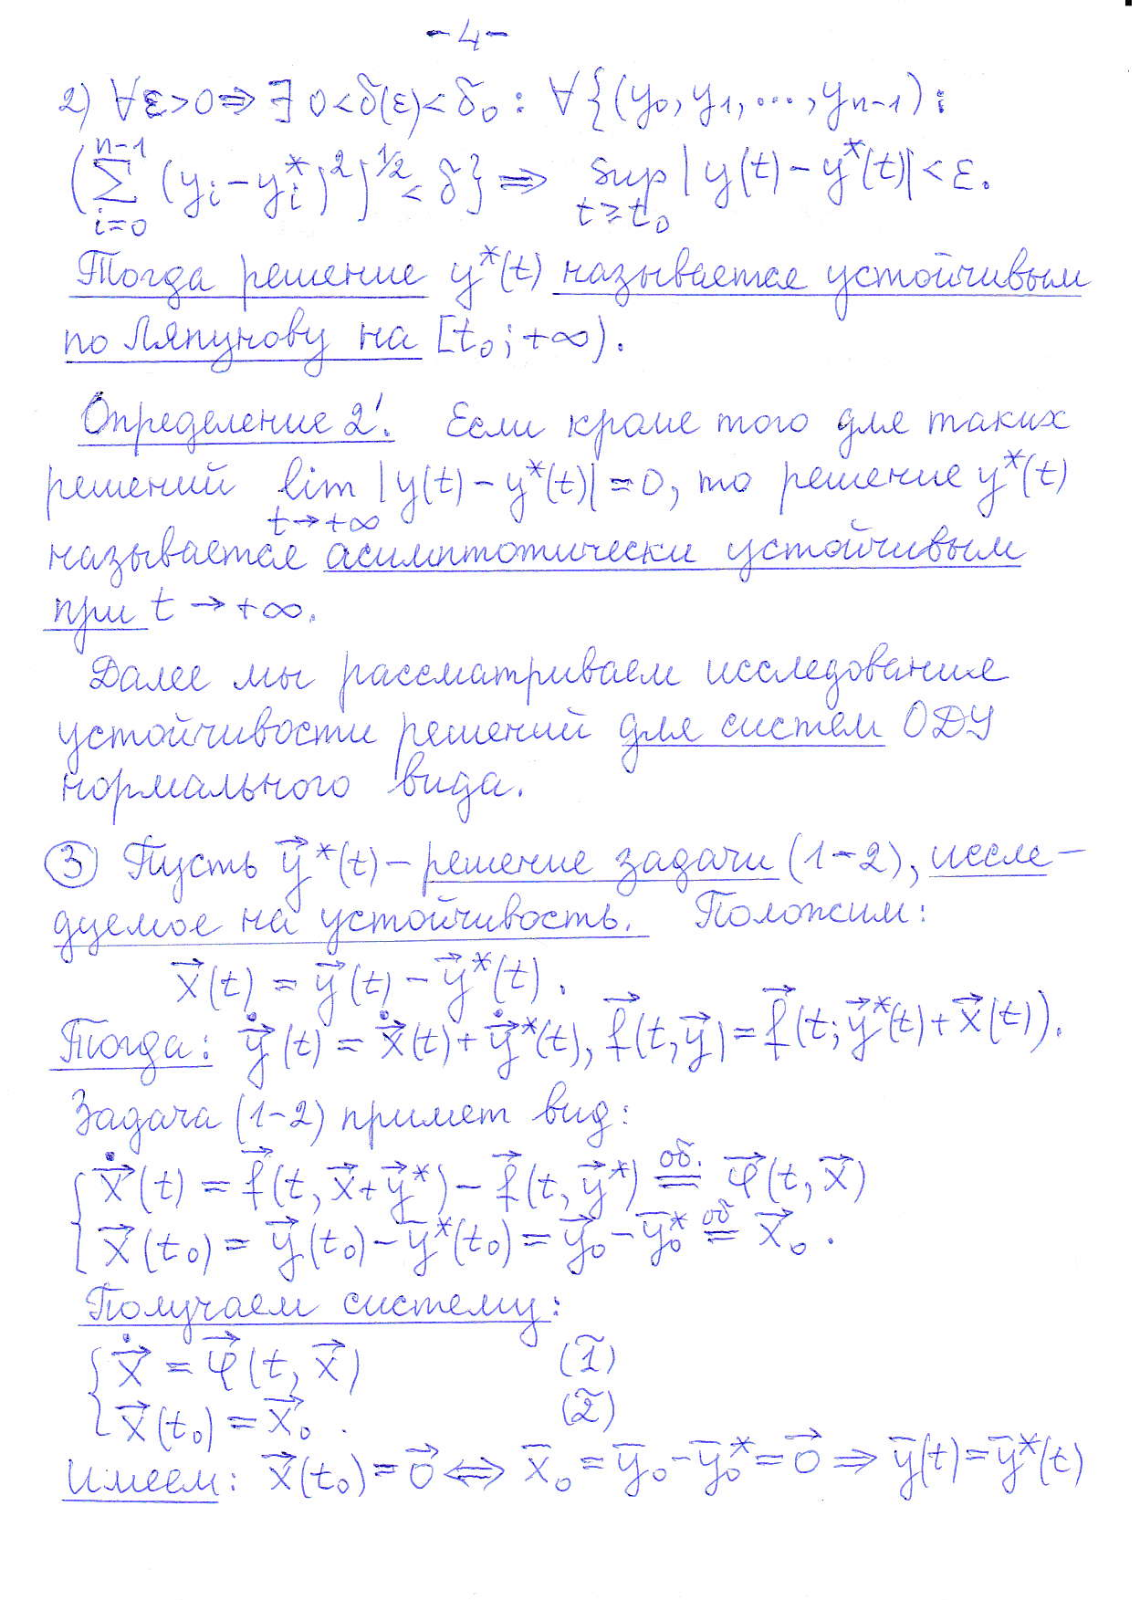 -4-
2) ∀ε>0 ⇒ ∃ 0<δ(ε)<δ₀ : ∀{(y₀, y₁, ..., yₙ₋₁) :
(∑_{i=0}^{n-1} (yᵢ - yᵢ*)²)^{1/2} < δ} ⇒ sup_{t≥t₀} |y(t) - y*(t)| < ε.
Тогда решение y*(t) называется устойчивым
по Ляпунову на [t₀; +∞).
Определение 2'. Если кроме того для таких
решений lim_{t→+∞} |y(t) - y*(t)| = 0, то решение y*(t)
называется асимптотически устойчивым
при t → +∞.
Далее мы рассматриваем исследования
устойчивости решений для систем ОДУ
нормального вида.
③ Пусть y⃗*(t) – решение задачи (1-2), иссле-
дуемое на устойчивость. Положим:
x⃗(t) = y⃗(t) - y⃗*(t).
Тогда: y⃗̇(t) = x⃗̇(t) + y⃗̇*(t), f⃗(t, y⃗) = f⃗(t; y⃗*(t) + x⃗(t)).
Задача (1-2) примет вид:
{ x⃗̇(t) = f⃗(t, x⃗+y⃗*) - f⃗(t, y⃗*) =^{об.} φ⃗(t, x⃗)
x⃗(t₀) = y⃗(t₀) - y̅*(t₀) = y⃗₀ - y̅₀* =^{об} x⃗₀.
Получаем систему:
{ x⃗̇ = φ⃗(t, x⃗) (1̃)
x⃗(t₀) = x⃗₀. (2̃)
Имеем: x⃗(t₀) = 0⃗ ⇔ x̅₀ = y̅₀ - y̅₀* = 0⃗ ⇒ y̅(t) = y̅*(t)